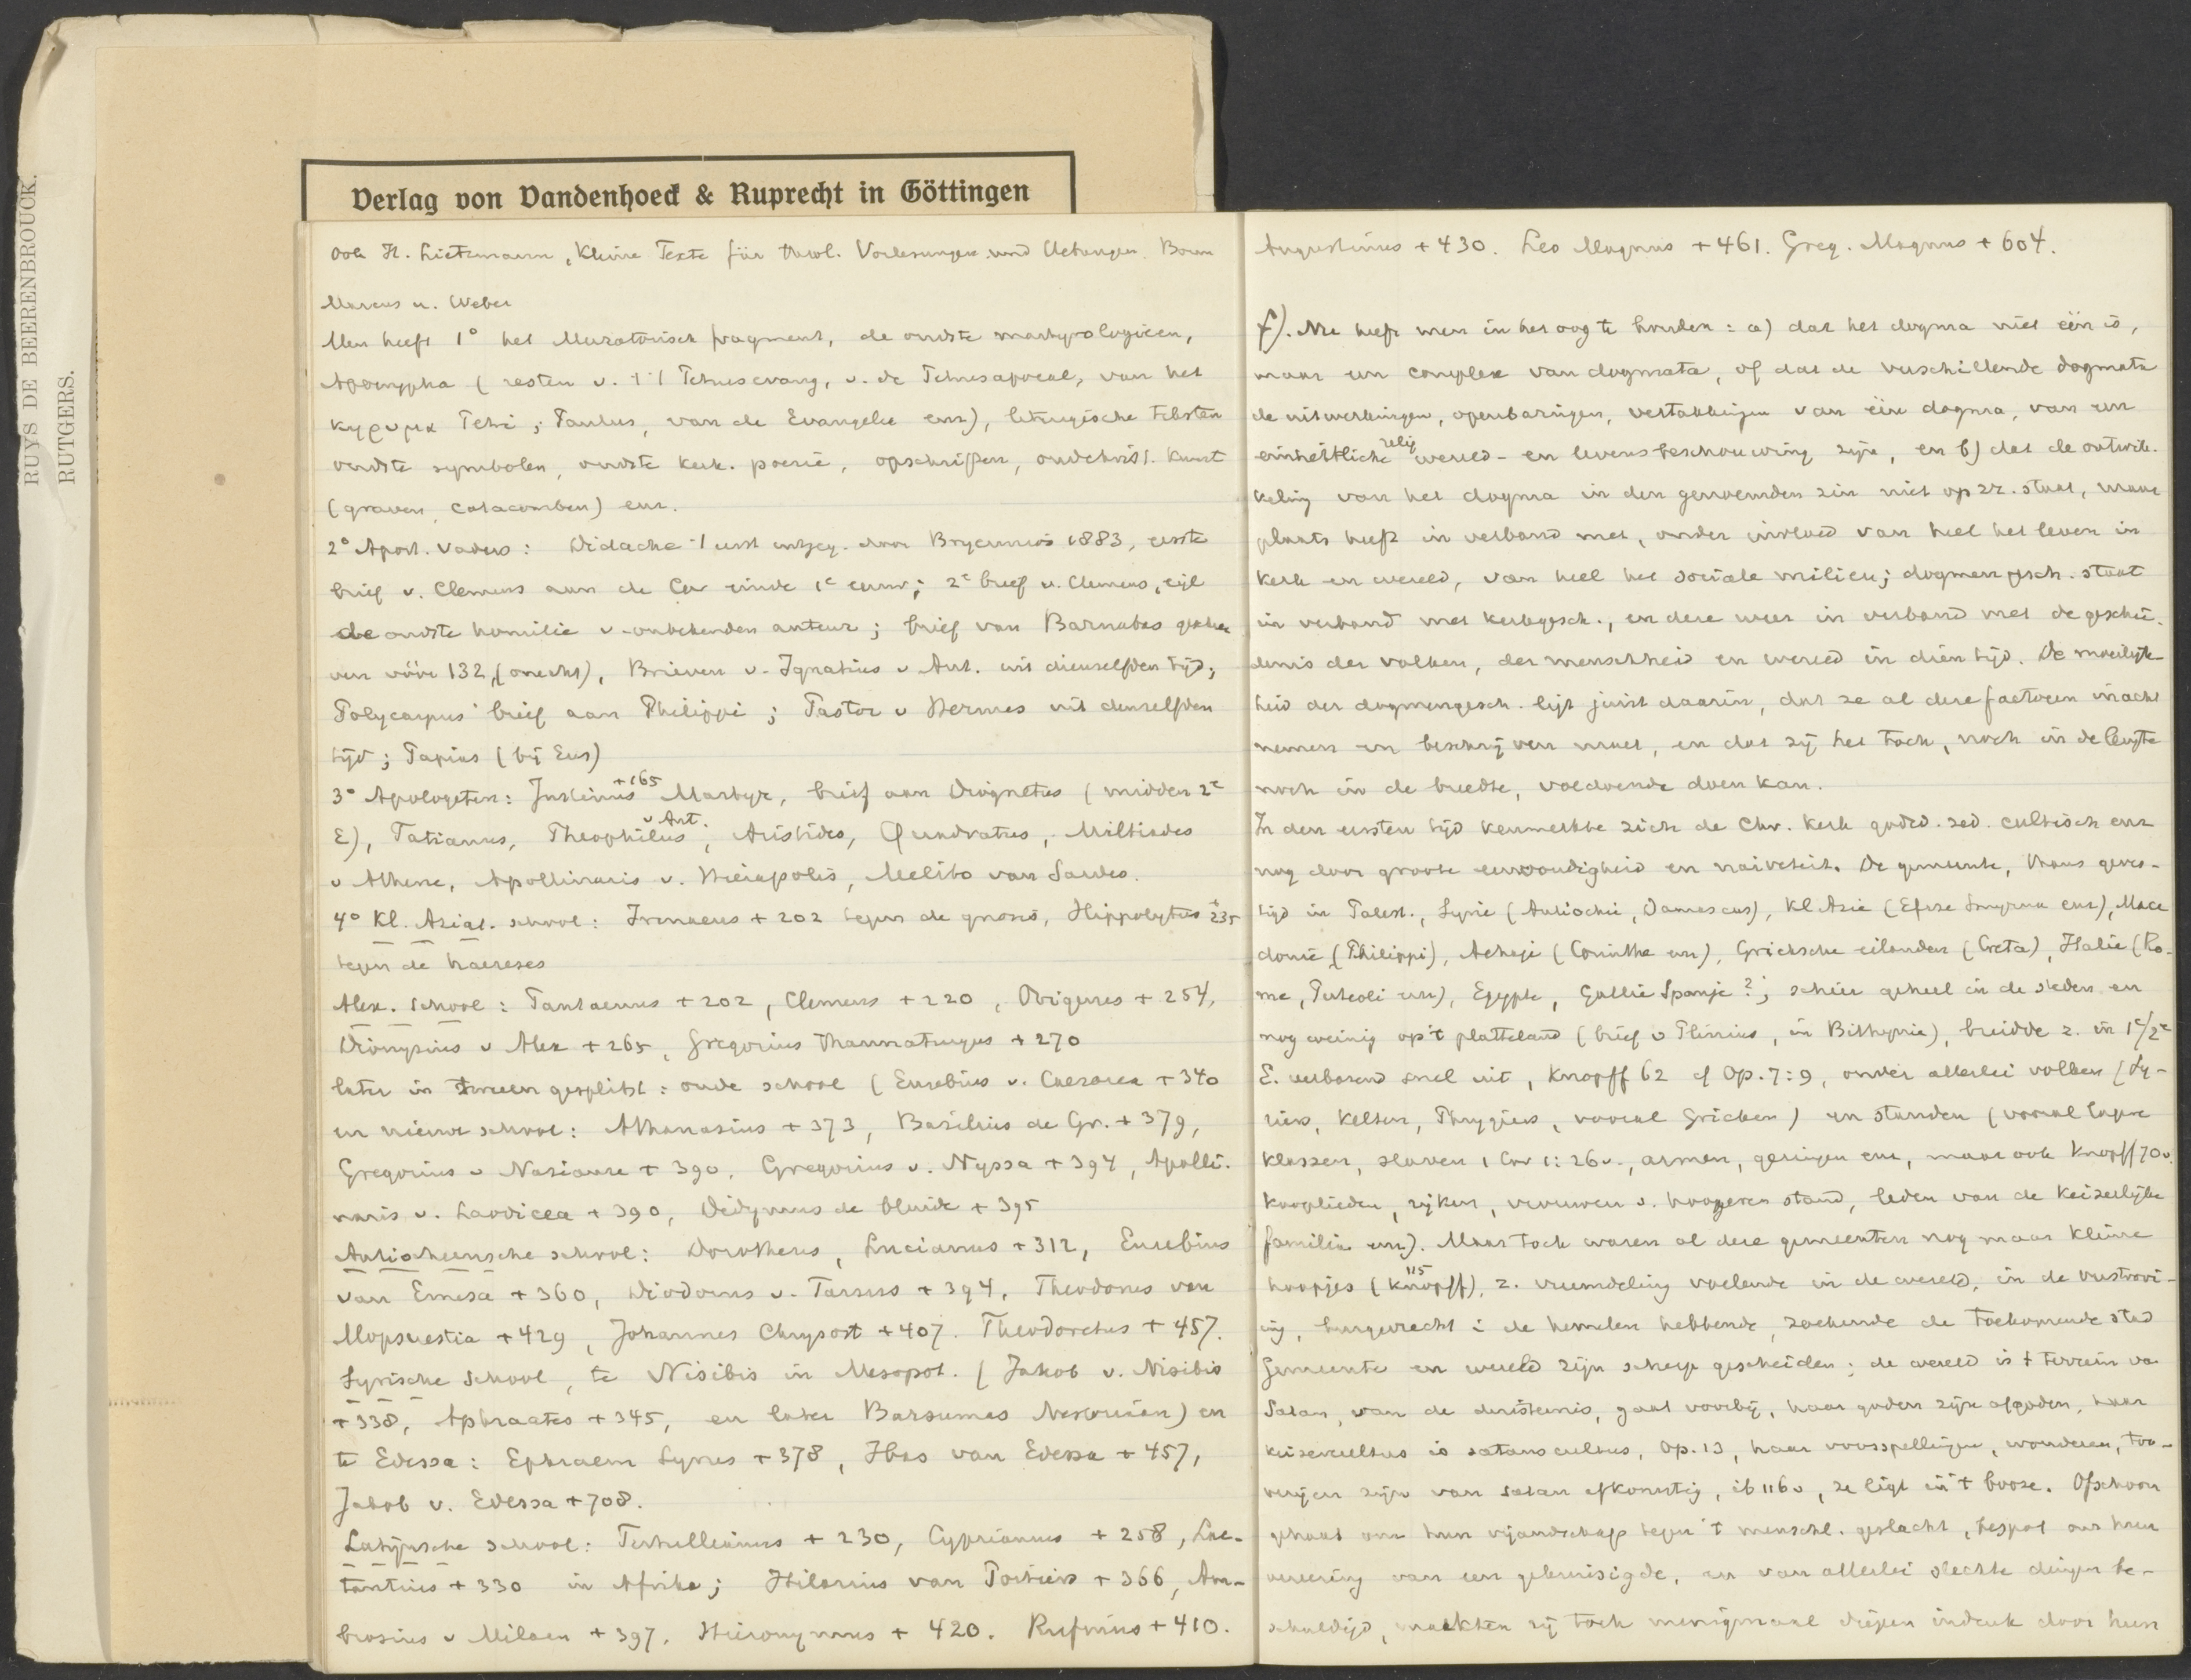 RUYS DE BEERENBROUCK.
RUTGERS.
Verlag von Vandenhoeck & Ruprecht in Göttingen
Ook H. Lietzmann, Kleine Texte für theol. Vorlesungen und Uebungen. Bonn
Marcus u. Weber
Men heeft 1° het Muratorisch fragment, de oudste martyrologieen,
Apocrypha (resten v. 't Petrusevang, v. de Petrusapocal, van het
κηρυγμα Petri; Paulus, van de Evangelie enz), liturgische teksten
oudste symbolen, oudste kerk. poezie, opschriften, oudchristl. kunst
(graven, catacomben) enz.
2° Apost. Vaders: Didache 't eerst uitgeg. door Bryennios 1883, eerste
brief v. Clemens aan de Cor einde 1e eeuw; 2e brief v. Clemens, eigl
de oudste homilie v. onbekenden auteur; brief van Barnabas geschre
ven vóór 132, (onecht), Brieven v. Ignatius v Ant. uit dienzelfden tijd;
Polycarpus' brief aan Philippi; Pastor v Hermas uit denzelfden
tijd; Papias (bij Eus)
3° Apologeten: Justinus +165 Martyr, brief aan Diognetus (midden 2e
E), Tatianus, Theophilus v Ant., Aristides, Quadratus, Miltiades
v Athene, Apollinaris v. Hierapolis, Melito van Sardes.
4° Kl. Aziat. school: Irenaeus + 202 tegen de gnosis, Hippolytus + 235
tegen de haereses
Alex. school: Pantaenus + 202, Clemens + 220, Origenes + 254,
Dionysius v Alex + 265, Gregorius Thaumaturgus + 270
later in tweeen gesplitst: oude school (Eusebius v. Caesarea + 340
en nieuwe school: Athanasius + 373, Basilius de Gr. + 379,
Gregorius v Nazianze + 390, Gregorius v. Nyssa + 394, Apolli-
naris v. Laodicea + 390, Didymus de blinde + 395
Antiocheensche school: Dorotheus, Lucianus + 312, Eusebius
van Emesa + 360, Diodorus v. Tarsus + 394, Theodorus van
Mopsuestia + 429, Johannes Chrysost + 407. Theodoretus + 457.
Syrische school, te Nisibis in Mesopot. (Jakob v. Nisibis
+ 338, Aphraates + 345, en later Barsumas Nestoriaan) en
te Edessa: Ephraem Syrus + 378, Ibas van Edessa + 457,
Jakob v. Edessa + 708.
Latijnsche school: Tertullianus + 230, Cyprianus + 258, Lac-
tantius + 330 in Afrika; Hilarius van Poitiers + 366, Am-
brosius v Milaan + 397, Hieronymus + 420. Rufinus + 410.
Augustinus + 430. Leo Magnus + 461. Greg. Magnus + 604.
f). Nu heeft men in het oog te houden: a) dat het dogma niet één is,
maar een complex van dogmata, of dat de verschillende dogmata
de uitwerkingen, openbaringen, vertakkingen van één dogma, van een
einheitliche relig wereld- en levensbeschouwing zijn, en b) dat de ontwik-
keling van het dogma in den genoemden zin niet op zz. staat, maar
plaats heeft in verband met, onder invloed van heel het leven in
kerk en wereld, van heel het sociale milieu; dogmengesch. staat
in verband met kerkgesch., en deze weer in verband met de geschie-
denis der volken, der menschheid en wereld in dien tijd. De moeilijk-
heid der dogmengesch. ligt juist daarin, dat ze al deze factoren inacht
nemen en beschrijven moet, en dat zij het toch, noch in de lengte
noch in de breedte, voldoende doen kan.
In den eersten tijd kenmerkte zich de Chr. kerk godsd. zed. cultisch enz
nog door groote eenvoudigheid en naiveteit. De gemeente, thans geves-
tigd in Palest., Syrie (Antiochie, Damascus), Kl Azie (Efeze Smyrna enz), Mace
donie (Philippi), Achaje (Corinthe enz), Grieksche eilanden (Creta), Italie (Ro-
me, Puteoli enz), Egypte, Gallie Spanje?; schier geheel in de steden en
nog weinig op 't platteland (brief v Plinius, in Bithynie), breidde z. in 1e/2e
E. verbazend snel uit, Knopff 62 cf Op. 7:9, onder allerlei volken (Sy-
riers, Kelten, Phrygiers, vooral Grieken) en standen (vooral lagere
klassen, slaven 1 Cor 1:26v., armen, geringen enz, maar ook Knopff 70v.
kooplieden, rijken, vrouwen v. hoogeren stand, leden van de keizerlijke
familie enz). Maar toch waren al deze gemeenten nog maar kleine
hoopjes (Knopff 115), z. vreemdeling voelende in de wereld, in de verstrooi-
ing, burgerrecht i de hemelen hebbende, zoekende de toekomende stad
Gemeente en wereld zijn scherp gescheiden; de wereld is 't terrein va
Satan, van de duisternis, gaat voorbij, haar goden zijn afgoden, haar
keizercultus is satanscultus, Op. 13, haar voorspellingen, wonderen, too-
verijen zijn van satan afkomstig, ib 116v, ze ligt in 't booze. Ofschoon
gehaat om hun vijandschap tegen 't menschl. geslacht, bespot om hun
vereering van een gekruisigde, en van allerlei slechte dingen be-
schuldigd, maakten zij toch menigmaal diepen indruk door hun